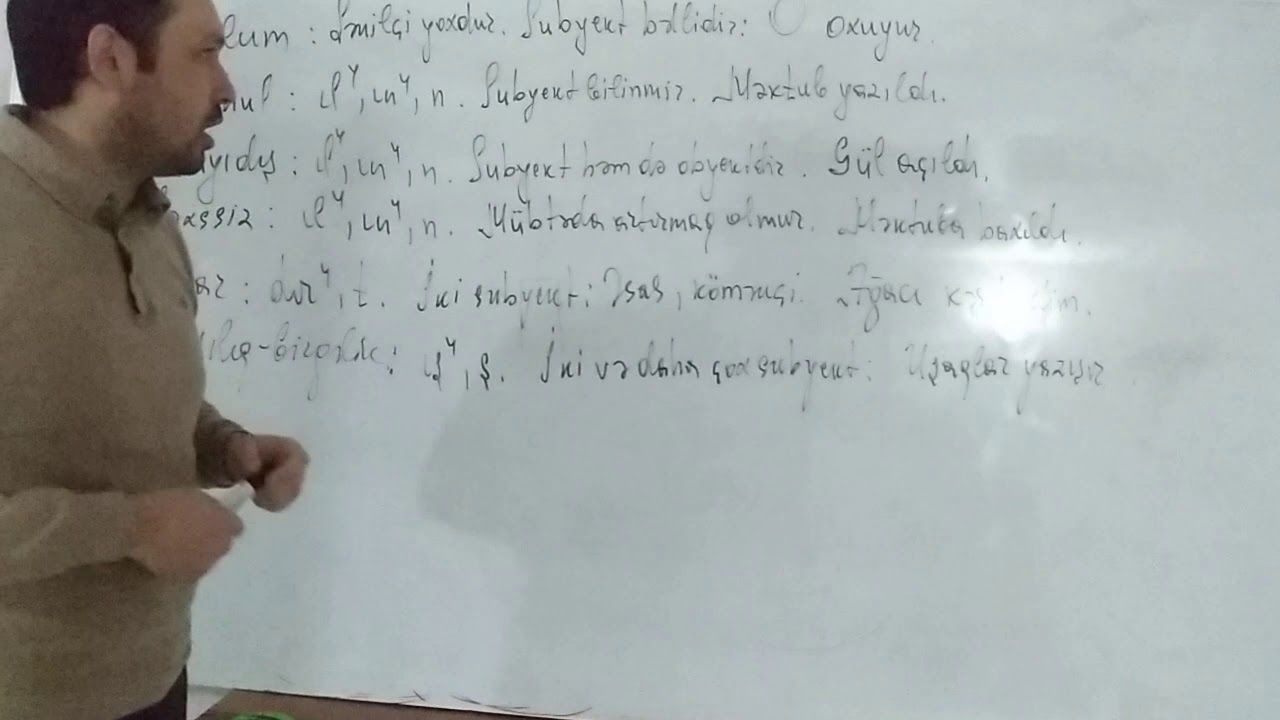 lum : Əmilçi yoxdur. Subyekt bəllidir: O oxuyur.
hul : ıl⁴, ın⁴, n. Subyekt bilinmir. Məktub yazıldı.
yıdış : ıl⁴, ın⁴, n. Subyekt həm də obyektdir. Gül açıldı.
xssiz : ıl⁴, ın⁴, n. Mübtəda artırmaq olmur. Məktuba baxıldı.
ar : dır⁴, t. İki subyekt: Əsas, köməkçi. Ağacı
ılıq-birgəlik : ış⁴, ş. İki və daha çox subyekt: Uşaqlar yazışır